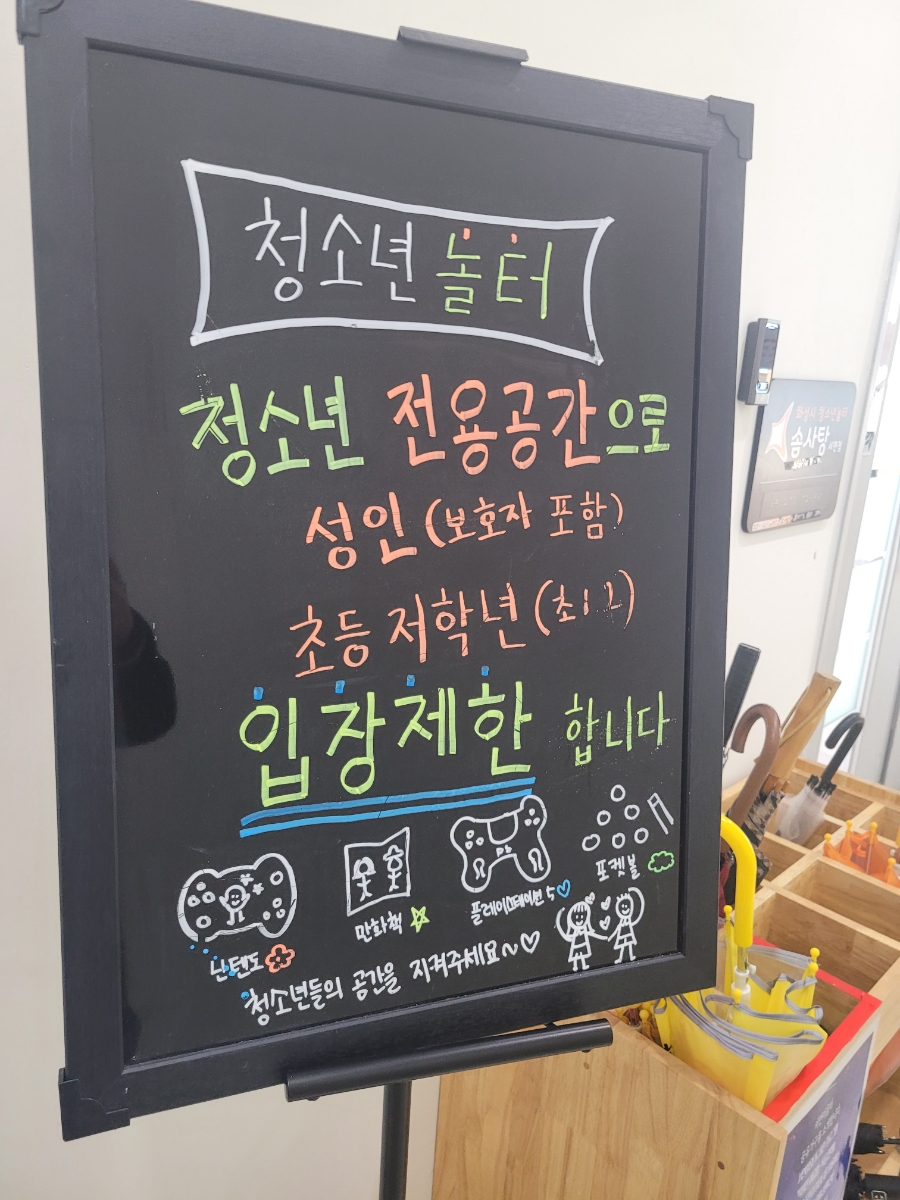 청소년 놀터
청소년 전용공간으로
성인 (보호자 포함)
초등 저학년 (초1.2)
입장제한 합니다
난텐도
만화책
플레이스테이션 5
포켓볼
청소년들의 공간을 지켜주세요~
화성시 청소년놀터
솜사탕